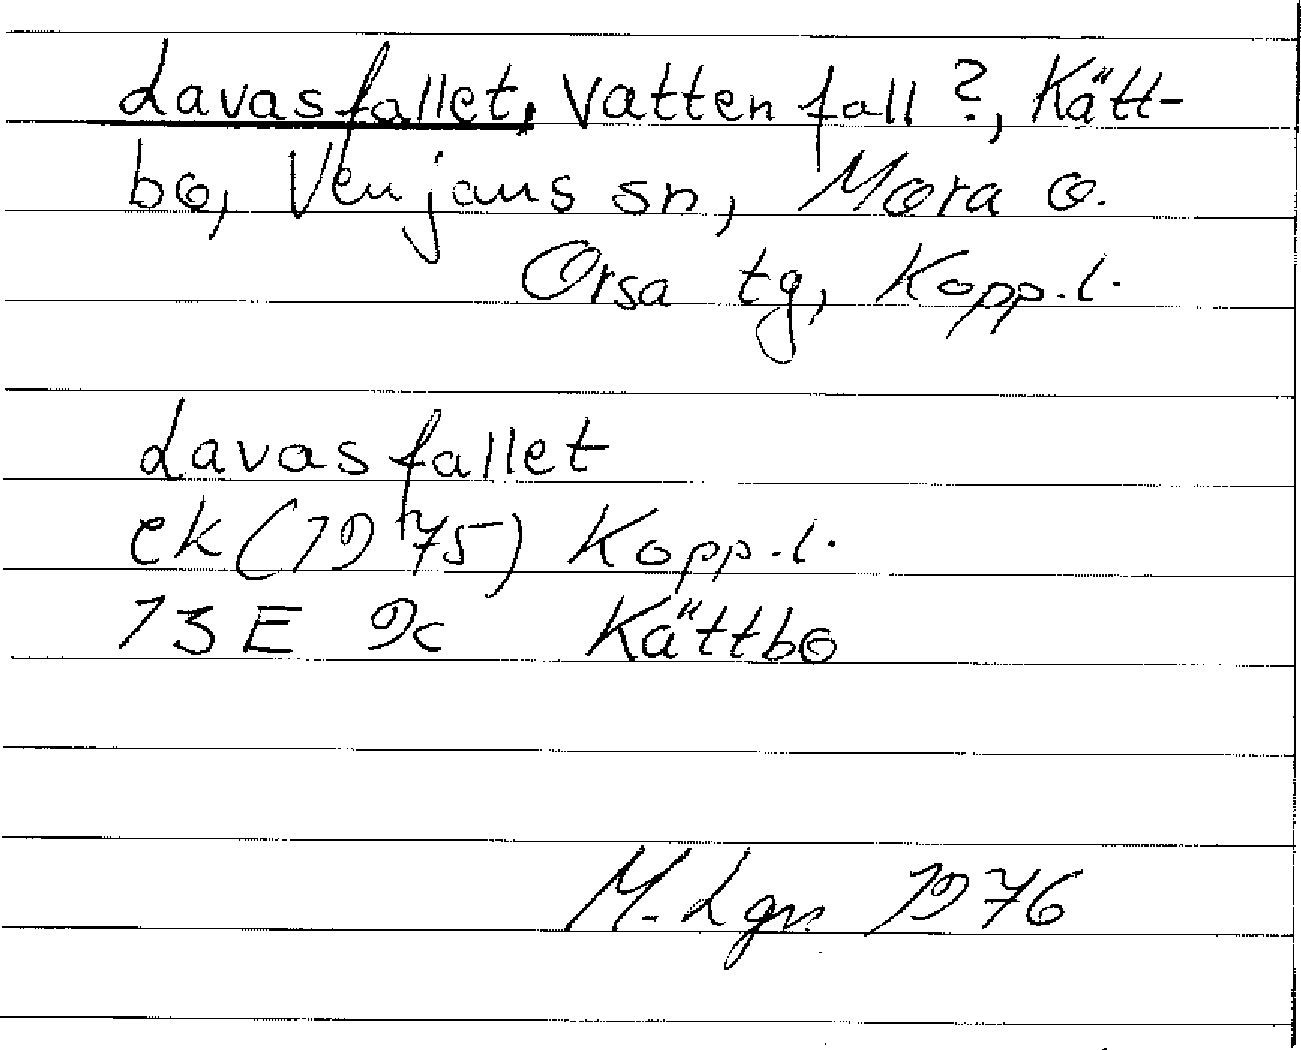 Lavasfallet, Vattenfall?, Kätt-
bo, Venjans sn, Mora o.
Orsa tg, Kopp.l.
Lavasfallet
ek (1975) Kopp.l.
13E 9c Kättbo
M. Lgn 1976